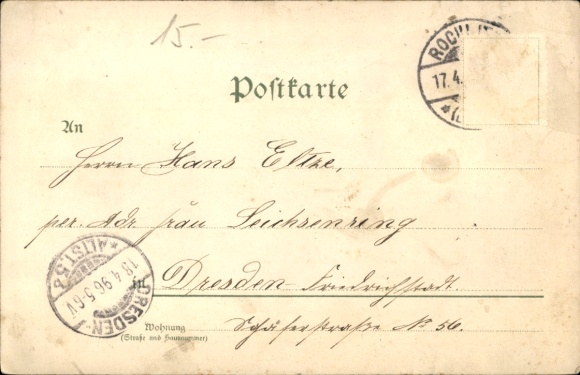 15.-
ROCHLITZ
17.4.
Postkarte
An
Herrn Hans Eltze,
per. Adr. Frau Leichsenring
in Dresden Friedrichstadt
Wohnung
(Straße und Hausnummer)
Schäferstraße No 56.
DRESDEN
ALTST. 5
18.4.96.5-6V